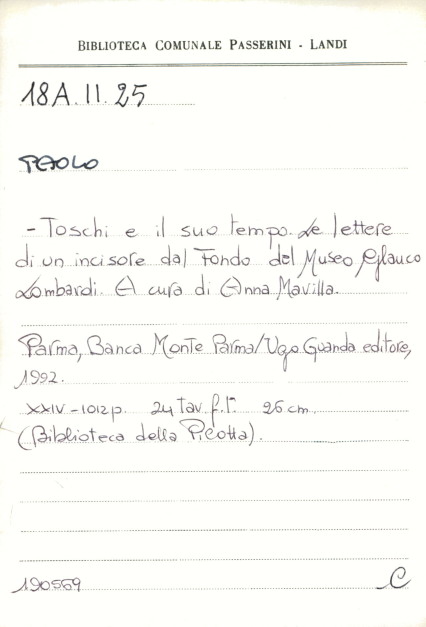 BIBLIOTECA COMUNALE PASSERINI - LANDI
18A.II.25
PAOLO
- Toschi e il suo tempo. Le lettere
di un incisore dal Fondo del Museo Glauco
Lombardi. A cura di Anna Mavilla.
Parma, Banca Monte Parma/Ugo Guanda editore,
1992.
XXIV-1012p. 24 tav.f.t. 26 cm.
(Biblioteca della Pilotta).
190559
C